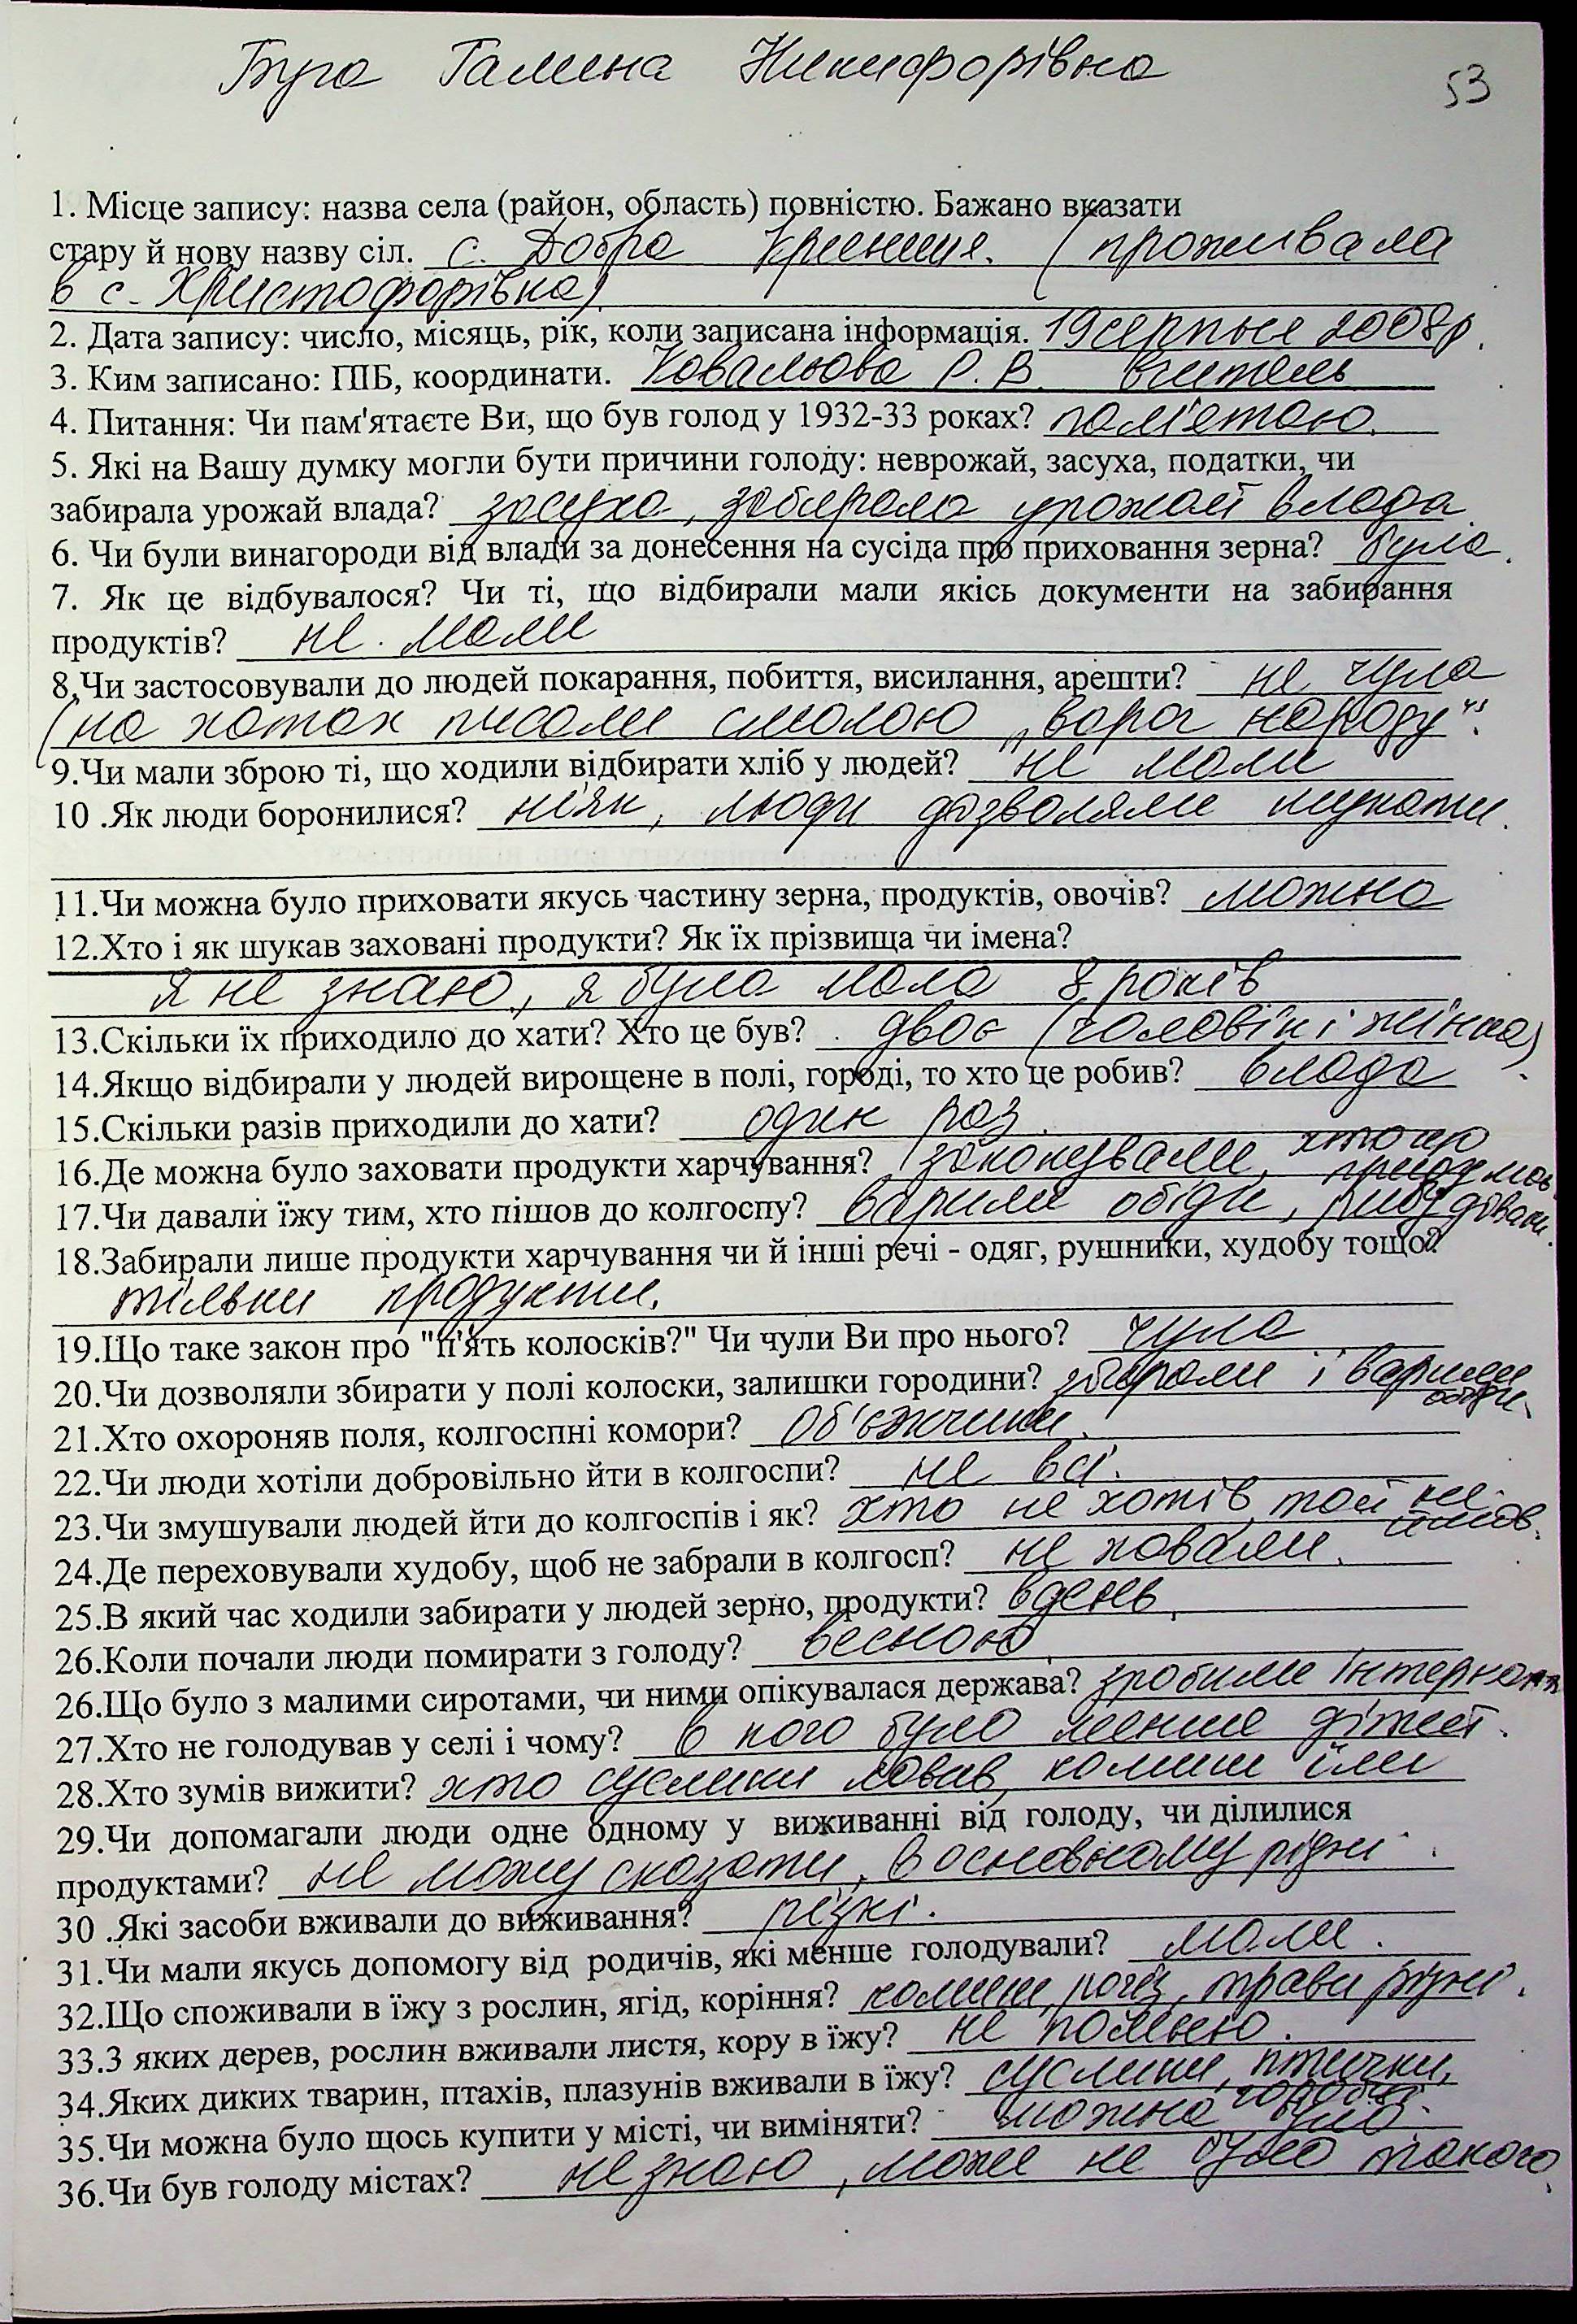 Буга Галина Никифорівна
53
1. Місце запису: назва села (район, область) повністю. Бажано вказати
стару й нову назву сіл. с. Добра Криниця. (проживала
в с. Христофорівка).
2. Дата запису: число, місяць, рік, коли записана інформація. 19 серпня 2008р.
3. Ким записано: ПІБ, координати. Ковальова Р. В. вчитель
4. Питання: Чи пам'ятаєте Ви, що був голод у 1932-33 роках? пам'ятаю.
5. Які на Вашу думку могли бути причини голоду: неврожай, засуха, податки, чи
забирала урожай влада? засуха, забирала урожай влада.
6. Чи були винагороди від влади за донесення на сусіда про приховання зерна? була.
7. Як це відбувалося? Чи ті, що відбирали мали якісь документи на забирання
продуктів? не мали
8,Чи застосовували до людей покарання, побиття, висилання, арешти? не чула
(на хатах писали смолою „ворог народу“.
9.Чи мали зброю ті, що ходили відбирати хліб у людей? не мали
10 .Як люди боронилися? ніяк, люди дозволяли шукати.
11.Чи можна було приховати якусь частину зерна, продуктів, овочів? можна
12.Хто і як шукав заховані продукти? Як їх прізвища чи імена?
Я не знаю, я була мала 8 років
13.Скільки їх приходило до хати? Хто це був? двоє (чоловік і жінка)
14.Якщо відбирали у людей вирощене в полі, городі, то хто це робив? влада.
15.Скільки разів приходили до хати? один раз.
16.Де можна було заховати продукти харчування? закопували, хто що
17.Чи давали їжу тим, хто пішов до колгоспу? варили обіди,
18.Забирали лише продукти харчування чи й інші речі - одяг, рушники, худобу тощо?
тільки продукти.
19.Що таке закон про "п'ять колосків?" Чи чули Ви про нього? чула
20.Чи дозволяли збирати у полі колоски, залишки городини? збирали і варили
обіди.
21.Хто охороняв поля, колгоспні комори? Об'єжчики.
22.Чи люди хотіли добровільно йти в колгоспи? не всі.
23.Чи змушували людей йти до колгоспів і як? хто не хотів, той не
ішов.
24.Де переховували худобу, щоб не забрали в колгосп? не ховали.
25.В який час ходили забирати у людей зерно, продукти? вдень.
26.Коли почали люди помирати з голоду? весною.
26.Що було з малими сиротами, чи ними опікувалася держава? зробили інтернати
27.Хто не голодував у селі і чому? в кого було менше дітей.
28.Хто зумів вижити? хто суслики ловив, комиш їли
29.Чи допомагали люди одне одному у виживанні від голоду, чи ділилися
продуктами? не можу сказати, в основному рідні.
30 .Які засоби вживали до виживання? різні.
31.Чи мали якусь допомогу від родичів, які менше голодували? мали.
32.Що споживали в їжу з рослин, ягід, коріння? комиш, рогіз, трави різні.
33.З яких дерев, рослин вживали листя, кору в їжу? не помню.
34.Яких диких тварин, птахів, плазунів вживали в їжу? суслики, птички,
горобці.
35.Чи можна було щось купити у місті, чи виміняти? можна було.
36.Чи був голоду містах? не знаю, може не було такого.